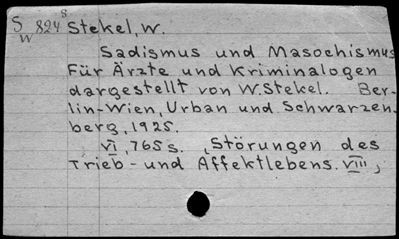 S 824 8 Stekel, W.
W
Sadismus und Masochismus
Für Ärzte und Kriminalogen
dargestellt von W. Stekel. Ber-
lin-Wien, Urban und Schwarzen-
berg, 1925.
VI, 765 s. (Störungen des
Trieb- und Affektlebens. VIII,